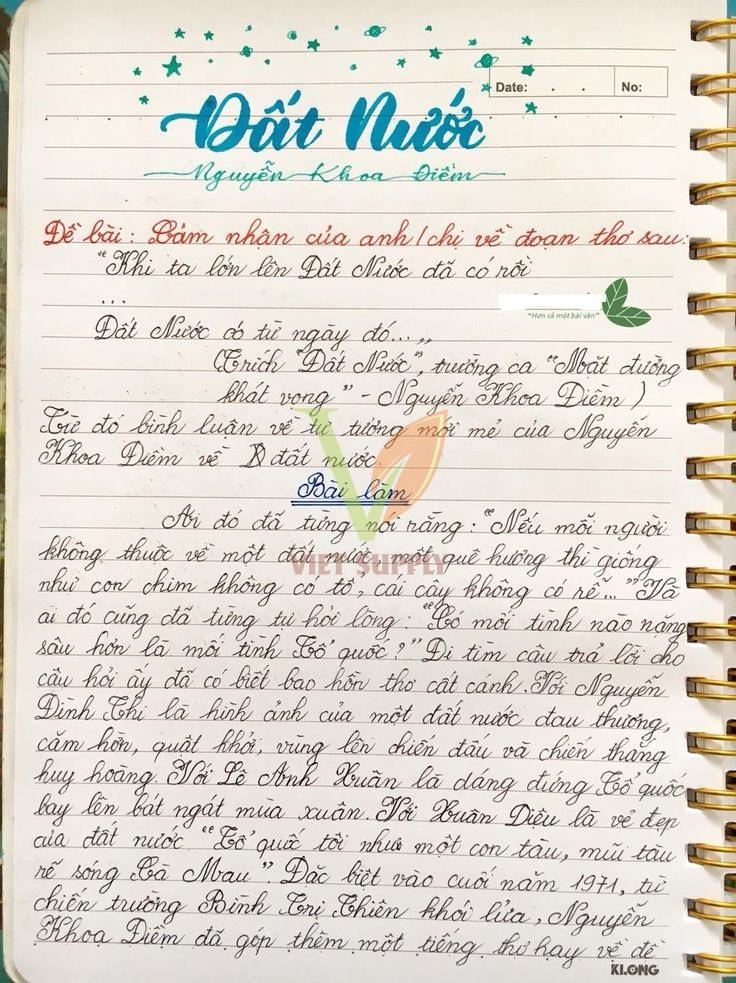 Date: . . No:
Đất Nước
Nguyễn Khoa Điềm
Đề bài: Cảm nhận của anh/chị về đoạn thơ sau:
"Khi ta lớn lên Đất Nước đã có rồi
...
"Hơn cả một bài văn"
Đất Nước có từ ngày đó..."
(Trích "Đất Nước", trường ca "Mặt đường
khát vọng" - Nguyễn Khoa Điềm)
Từ đó bình luận về tư tưởng mới mẻ của Nguyễn
Khoa Điềm về đất nước.
Bài làm
Ai đó đã từng nói rằng: "Nếu mỗi người
không thuộc về một đất nước, một quê hương thì giống
VIET SUPPLY
như con chim không có tổ, cái cây không có rễ..." Và
ai đó cũng đã từng tự hỏi lòng: "Có mối tình nào nặng
sâu hơn là mối tình Tổ quốc?" Đi tìm câu trả lời cho
câu hỏi ấy đã có biết bao hồn thơ cất cánh. Với Nguyễn
Đình Thi là hình ảnh của một đất nước đau thương,
căm hờn, quật khởi, vùng lên chiến đấu và chiến thắng
huy hoàng. Với Lê Anh Xuân là dáng đứng Tổ quốc
bay lên bát ngát mùa xuân. Với Xuân Diệu là vẻ đẹp
của đất nước "Tổ quốc tôi như một con tàu, mũi tàu
rẽ sóng Cà Mau". Đặc biệt vào cuối năm 1971, từ
chiến trường Bình Trị Thiên khói lửa, Nguyễn
Khoa Điềm đã góp thêm một tiếng thơ hay về đề
KLONG